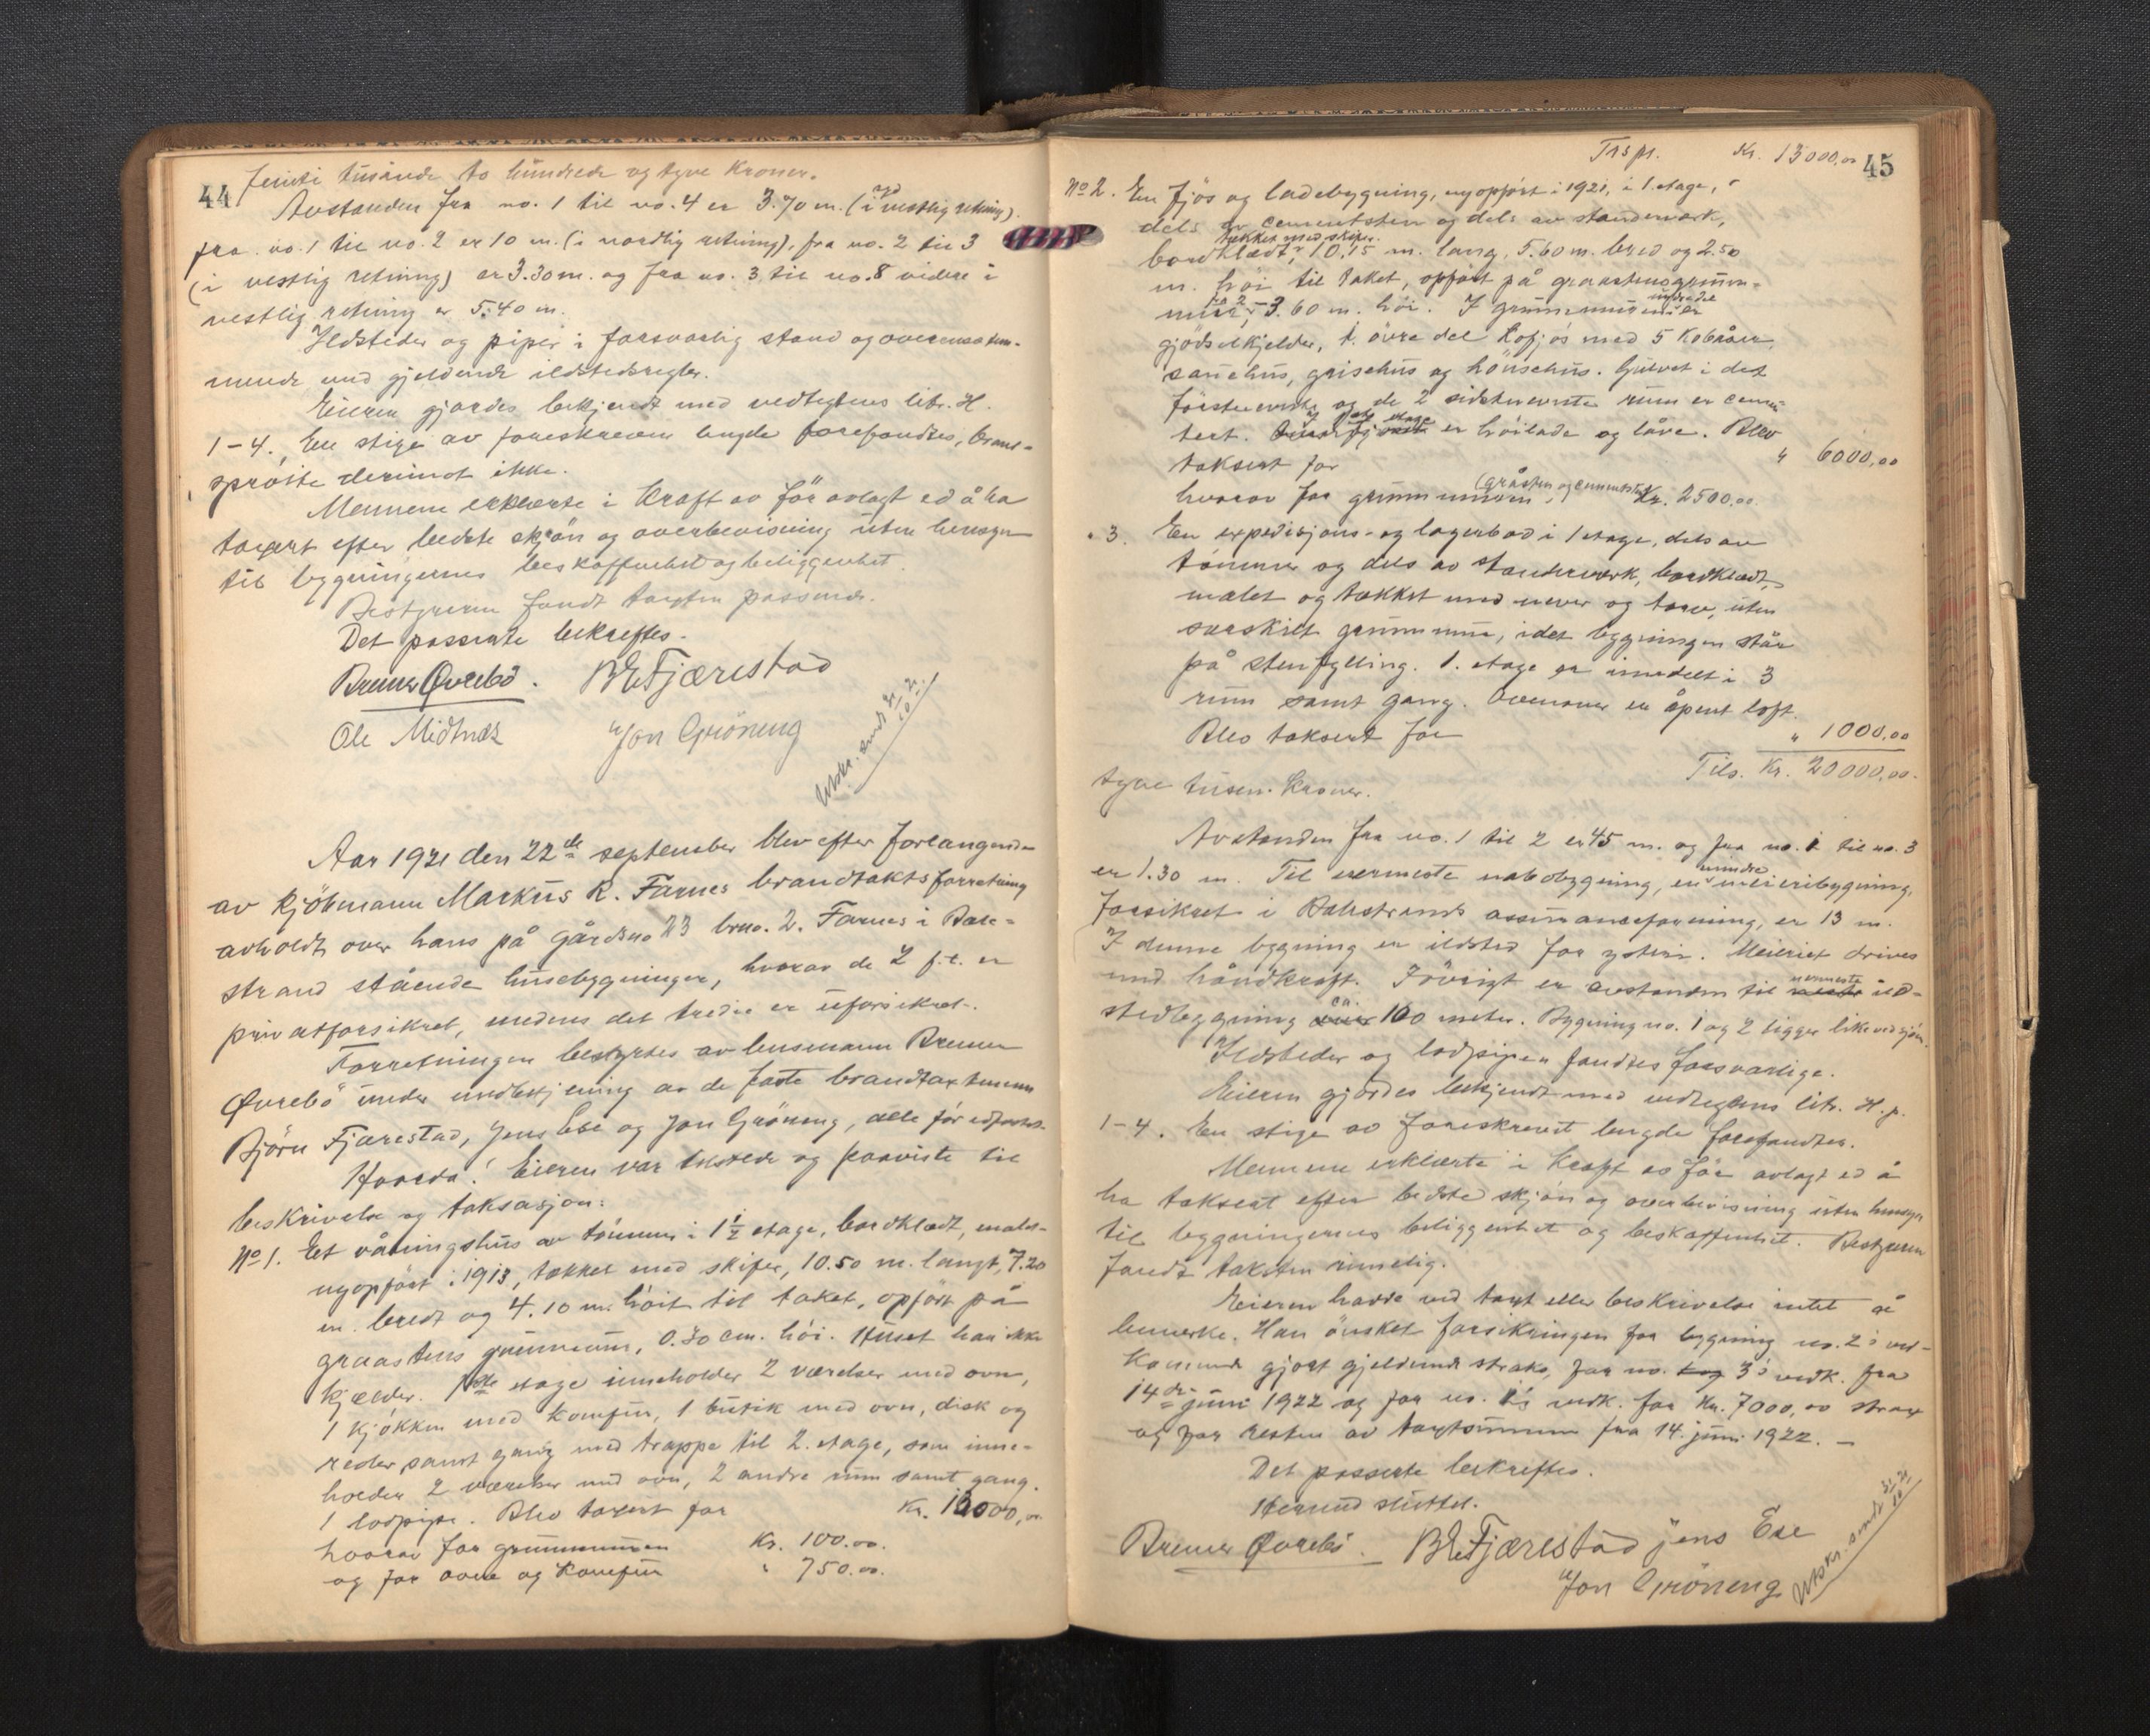 44
femti tusande to hundrede og tyve Kroner.
Avstanden fra no. 1 til no. 4 er 3.70 m. (i syd vestlig retning).
fra no. 1 til no. 2 er 10 m. (i nordlig retning), fra no. 2 til 3
(i vestlig retning) er 3.30 m. og fra no. 3 til no. 8 videre i
vestlig retning er 5.40 m.
Ildsteder og piper i forsvarlig stand og overensstem-
mende med gjeldende ildstedsregler.
Eieren gjordes bekjendt med vedtegtens litr. H.
1-4. En stige av foreskreven lengde forefandtes, brand-
sprøite derimot ikke.
Mennene erklærte i kraft av før avlagt ed å ha
taxert efter bedste skjøn og overbevisning uten hensyn
til bygningernes beskaffenhet og beliggenhet.
Bestyreren fandt taxten passende.
Det passerte bekreftes.
Bremer Øvrebö. B E Fjærestad
Ole Midtnæs Jon Gröneng
Utskr. sendt 3/10 21.
Aar 1921 den 22de september blev efter forlangende
av kjöbmann Markus R. Farnes brandtakstforretning
avholdt over hans på gårdsno 23 brno. 2. Farnes i Bale-
strand stående husebygninger, hvorav de 2 f.t. er
privatforsikret, medens det tredie er uforsikret.
Forretningen bestyrtes av lensmann Bremer
Øvrebö under medbetjening av de faste brandtaxtmenn
Björn Fjærestad, Jens Ese og Jon Gröneng, alle för edfæstet.
Hvorda! Eieren var tilstede og paaviste til
beskrivelse og taksasjon:
No 1. Et våningshus av tømmer i 1½ etage, bordklædt, malet
nyopført i 1913, tækket med skifer, 10.50 m. langt, 7.20
m. bredt og 4.10 m. høit til taket, opført på
graastens grunnmur, 0.30 cm. høi. Huset har ikke
kjælder. 1ste etage inneholder 2 værelser med ovn,
1 kjøkken med komfur, 1 butik med ovn, disk og
reoler, samt gang med trappe til 2. etage, som inne-
holder 2 værelser med ovn, 2 andre rum samt gang.
1 lodpipe. Blev taxert for Kr. 13000,00
hvorav for grunnmuren Kr. 100.00.
og for ovne og komfur " 750.00.
45
Trspr. Kr. 13000,00
No 2. En fjös og ladebygning, nyopført i 1921, i 1. etage,
dels av cementsten og dels av standerværk,
bordklædt, tækket med skifer. 10.15 m. lang, 5.60 m. bred og 2.50
m. høi til taket, opført på graastensgrunn-
mur, fra 2 - 3.60 m. høi. I grunnmuren nedredel er
gjødselkjelder, i övre del kofjös med 5 kobåser,
sauehus, grisehus og hönsehus. Gulvet i det
förstnevnte og de 2 sidstnevnte rum er cemen-
tert. I 1ste etage er höilade og låve. Blev
taksert for " 6000,00
hvorav for grunnmuren (gråsten og cementsten) Kr. 2500.00.
" 3. En expedisjons- og lagerbod i 1 etage, dels av
tömmer og dels av standerværk, bordklædt,
malet og tækket med never og torv, uten
særskilt grunnmur, idet bygningen står
på stenfylling. 1. etage er inndelt i 3
rum samt gang. Ovenover er åpent loft.
Blev taksert for " 1000,00
Tils. Kr. 20000,00.
tyve tusen Kroner.
Avstanden fra no. 1 til 2 er 45 m. og fra no. 1 til no. 3
er 1.30 m. Til nærmeste nabobygning, en mindre meieribygning,
forsikret i Balestrands assuranceforening, er 13 m.
I denne bygning er ildsted for ysteri. Meieriet drives
med håndkraft. Iövrigt er avstanden til nærmeste ild-
stedbygning ca. 100 meter. Bygning no. 1 og 2 ligger like ved sjön.
Ildsteder og lodpipen fandtes forsvarlige.
Eieren gjordes bekjendt med vedtegtens litr. H. p.
1-4. En stige av foreskrevet lengde forefandtes.
Mennene erklærte i kraft av för avlagt ed å
ha taksert efter bedste skjön og overbevisning uten hensyn
til bygningernes beliggenhet og beskaffenhet. Bestyreren
fandt taksten rimelig.
Eieren hadde ved taxt eller beskrivelse intet å
bemerke. Han önsket forsikringen for bygning no. 2's ved-
kommende gjort gjeldende straks, for no. 3's vedk. fra
14de juni 1922 og for no. 1's vedk. for Kr. 7000,00 strax
og for resten av taxtsummen fra 14. juni 1922. -
Det passerte bekreftes.
Hermed sluttet.
Bremer Øvrebö. B E Fjærestad Jens Ese
Jon Gröneng
Utskr. sendt 3/10 21.